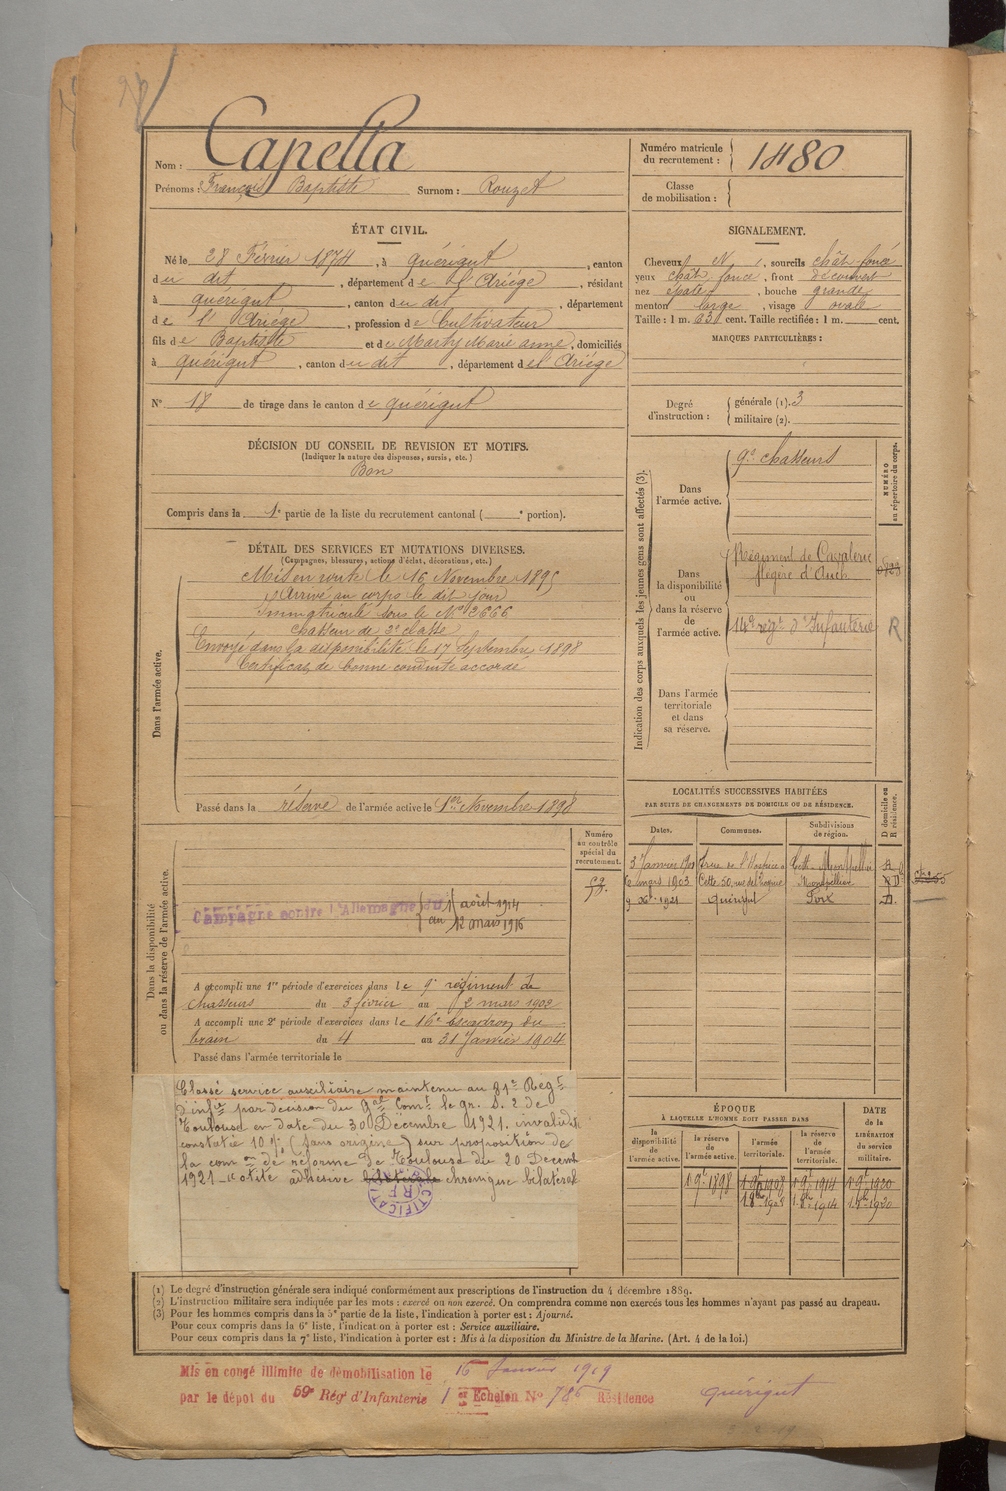 Nom : Capella
Prénoms : François Baptiste Surnom : Rouzet
Numéro matricule du recrutement : 1480
Classe de mobilisation :
ÉTAT CIVIL.
Né le 28 Février 1874, à Quérigut, canton
du dit, département de l'Ariége, résidant
à Quérigut, canton du dit, département
de l'Ariége, profession de Cultivateur
fils de Baptiste et de Marty Marie anne, domiciliés
à Quérigut, canton du dit, département de l'Ariége
N° 18 de tirage dans le canton de Quérigut
SIGNALEMENT.
Cheveux N, sourcils chât. foncé
yeux chât. foncé, front découvert
nez épaté, bouche grande
menton large, visage ovale
Taille : 1 m. 63 cent. Taille rectifiée : 1 m. cent.
MARQUES PARTICULIÈRES :
Degré d'instruction : générale (1). 3
militaire (2).
DÉCISION DU CONSEIL DE REVISION ET MOTIFS.
(Indiquer la nature des dispenses, sursis, etc.)
Bon
Compris dans la 1e partie de la liste du recrutement cantonal ( e portion).
DÉTAIL DES SERVICES ET MUTATIONS DIVERSES.
(Campagnes, blessures, actions d'éclat, décorations, etc.)
Dans l'armée active.
Mis en route le 16 Novembre 1895
Arrivé au corps le dit jour
Immatriculé sous le N° 2666
Chasseur de 2e classe
Envoyé dans la disponibilité le 17 Septembre 1898
Certificat de bonne conduite accordé
Passé dans la réserve de l'armée active le 1er Novembre 1898
Indication des corps auxquels les jeunes gens sont affectés (3).
NUMÉRO au répertoire du corps.
Dans l'armée active.
9e chasseurs
Dans la disponibilité ou dans la réserve de l'armée active.
Régiment de Cavalerie
légère d'Auch
14e régt d'Infanterie R
Dans l'armée territoriale et dans sa réserve.
LOCALITÉS SUCCESSIVES HABITÉES
PAR SUITE DE CHANGEMENTS DE DOMICILE OU DE RÉSIDENCE.
Dates. Communes. Subdivisions de région. D domicile ou R résidence.
6 mars 1903 Cette 50, rue de Montpellier
9 Xbre 1921 Quérigut Foix D.
Dans la disponibilité ou dans la réserve de l'armée active.
Numéro au contrôle spécial du recrutement.
Campagne contre l'Allemagne du 1 août 1914
au 12 mars 1916
A accompli une 1re période d'exercices dans le 9e régiment de
chasseurs du 3 février au 2 mars 1902
A accompli une 2e période d'exercices dans le 16e Escadron du
train du 4 au 31 Janvier 1904
Passé dans l'armée territoriale le
Classé service auxiliaire maintenu au 81e Régt
d'infie par décision du Gal Comt le gr. S. 2 de
Toulouse en date du 30 Décembre 1921. invalidité
constatée 10% (sans origine) sur proposition de
la comon de réforme de Toulouse du 20 Décemb
1921 - otite adhésive bilatérale chronique bilatérale
ÉPOQUE
À LAQUELLE L'HOMME DOIT PASSER DANS
DATE de la LIBÉRATION du service militaire.
la disponibilité de l'armée active. la réserve de l'armée active. l'armée territoriale. la réserve de l'armée territoriale.
1 9bre 1898 1 9bre 1908 1 9bre 1914 1 9bre 1920
1 8bre 1908 1 8bre 1914 1 8bre 1920
(1) Le degré d'instruction générale sera indiqué conformément aux prescriptions de l'instruction du 4 décembre 1889.
(2) L'instruction militaire sera indiquée par les mots : exercé ou non exercé. On comprendra comme non exercés tous les hommes n'ayant pas passé au drapeau.
(3) Pour les hommes compris dans la 5e partie de la liste, l'indication à porter est : Ajourné.
Pour ceux compris dans la 6e liste, l'indication à porter est : Service auxiliaire.
Pour ceux compris dans la 7e liste, l'indication à porter est : Mis à la disposition du Ministre de la Marine. (Art. 4 de la loi.)
Mis en congé illimité de démobilisation le 16 Janvier 1919
par le dépôt du 59e Rég d'Infanterie 1er Echelon N° 786 Résidence Quérigut